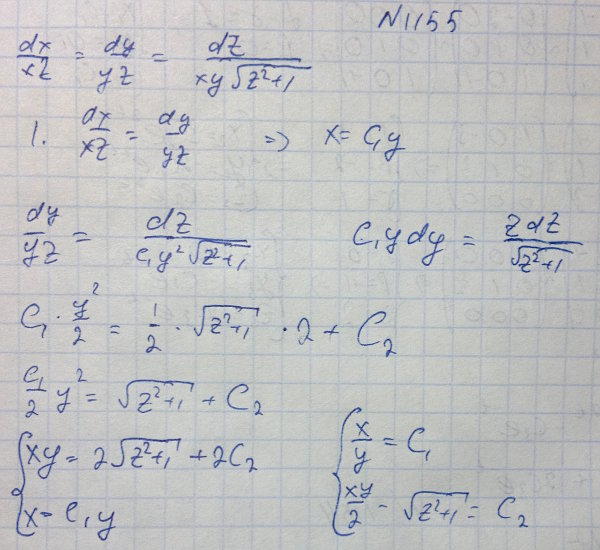 N1155
dx/xz = dy/yz = dz/(xy√(z²+1))
1. dx/xz = dy/yz => x = C₁y
dy/yz = dz/(C₁y²√(z²+1)) C₁ydy = zdz/√(z²+1)
C₁ · y²/2 = 1/2 · √(z²+1) · 2 + C₂
C₁/2 y² = √(z²+1) + C₂
{ xy = 2√(z²+1) + 2C₂
x = C₁y
{ x/y = C₁
xy/2 - √(z²+1) = C₂